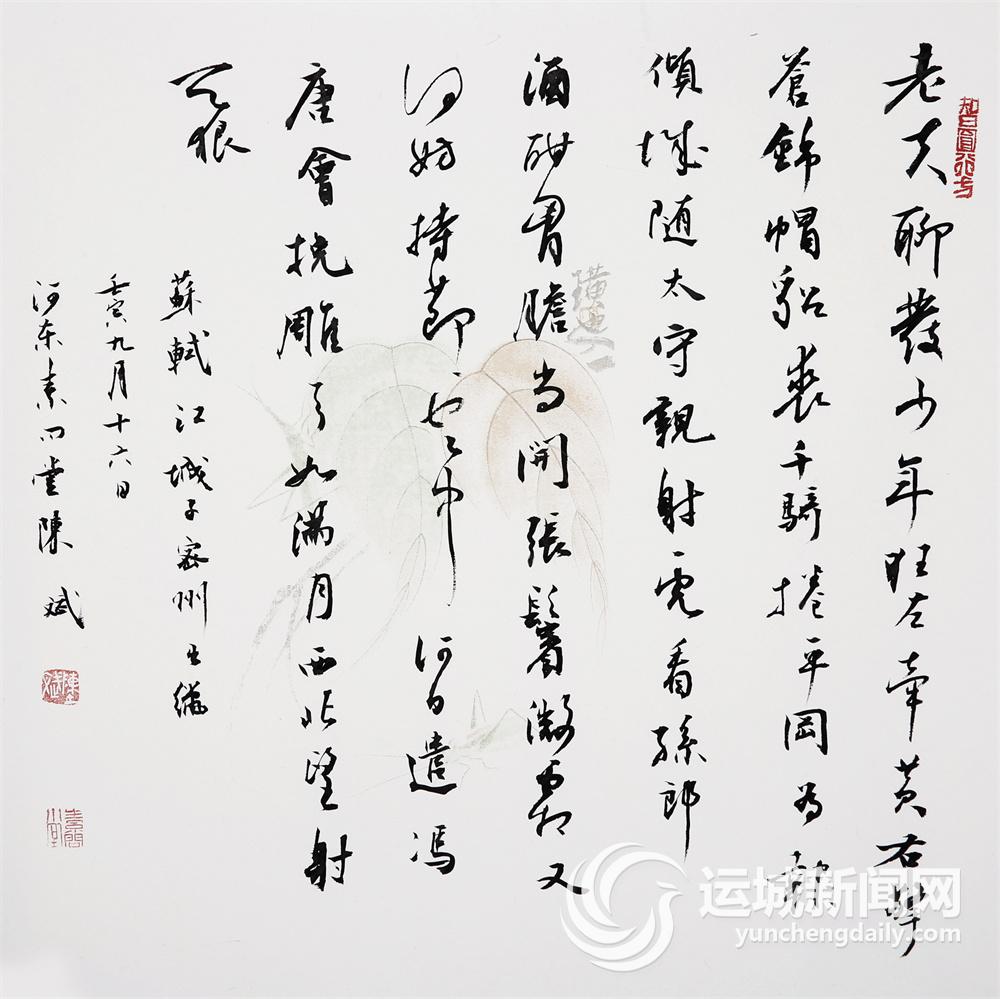 智圓行方
老夫聊發少年狂左牽黄右擎
蒼錦帽貂裘千騎捲平岡為報
傾城随太守親射虎看孫郎
酒酣胷膽尚開張鬢微霜又
何妨持節雲中何日遣馮
唐會挽雕弓如滿月西北望射
天狼
蘇軾江城子密州出獵
壬寅九月十六日
河東素堂陳斌
陳斌
运城新闻网
yunchengdaily.com